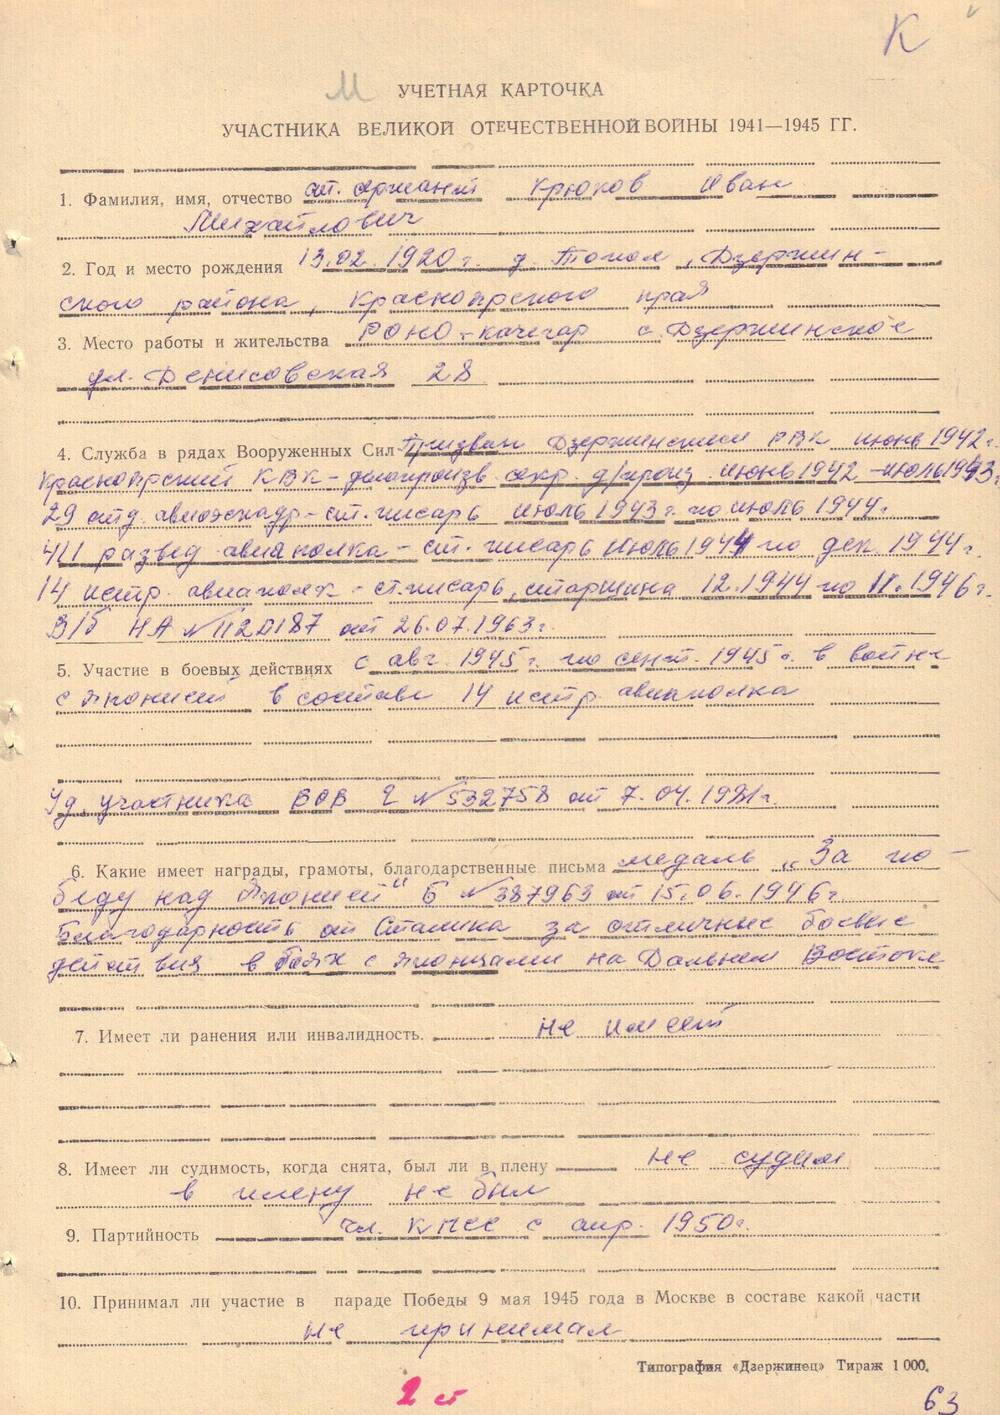 К
М
УЧЕТНАЯ КАРТОЧКА
УЧАСТНИКА ВЕЛИКОЙ ОТЕЧЕСТВЕННОЙ ВОЙНЫ 1941—1945 ГГ.
1. Фамилия, имя, отчество ст. сержант Крюков Иван
Михайлович
2. Год и место рождения 13.02.1920г. д. Топол, Дзержин-
ского района, Красноярского края
3. Место работы и жительства РОНО - кочегар с. Дзержинское
ул. Денисовская 28
4. Служба в рядах Вооруженных Сил Призван Дзержинским РВК июнь 1942г.
Красноярский КВК - делопроизв. секр. д/произ. июнь 1942 - июль 1943г.
29 отд. авиоэскадр - ст. писарь июль 1943г. по июль 1944г.
411 развед. авиаполка - ст. писарь июль 1944 по дек. 1944г.
14 истр. авиаполк - ст. писарь, старшина 12.1944 по 11.1946г.
В/б НА № 1120187 от 26.07.1963г.
5. Участие в боевых действиях с авг. 1945г. по сент. 1945г. в войне
с Японией в составе 14 истр. авиаполка
Уд. участника ВОВ Г № 532758 от 7.04.1981г.
6. Какие имеет награды, грамоты, благодарственные письма медаль „За по-
беду над Японией" Б № 387963 от 15.06.1946г.
Благодарность от Сталина за отличные боевые
действия в боях с японцами на Дальнем Востоке
7. Имеет ли ранения или инвалидность. не имеет
8. Имеет ли судимость, когда снята, был ли в плену не судим
в плену не был
9. Партийность чл. КПСС с апр. 1950г.
10. Принимал ли участие в параде Победы 9 мая 1945 года в Москве в составе какой части
не принимал
Типография «Дзержинец» Тираж 1 000.
2 ст
63